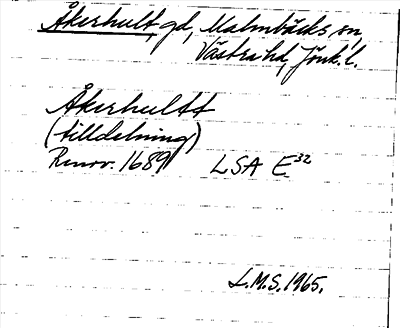 Åkerhult, gd, Malmbäcks sn,
Västra hd, Jönk. l.
Åkerhultt
(tilldelning)
Renov. 1689 LSA E 32
L.M.S. 1965.